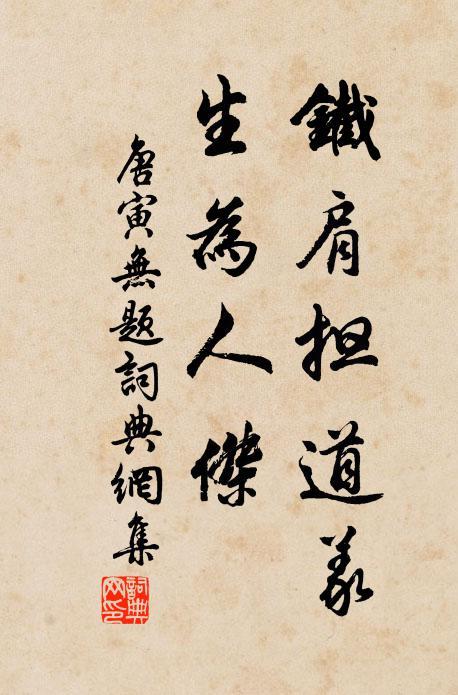 鐵肩担道義
生為人傑
唐寅無題詞典網集
詞典
网印